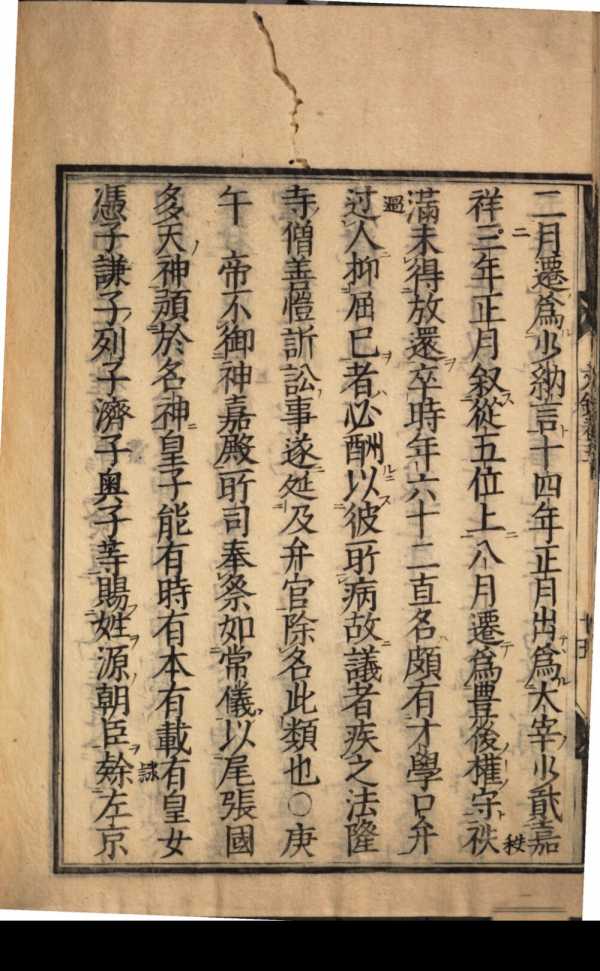 二月遷爲少納言十四年正月出爲太宰少貳嘉
祥三年正月叙從五位上八月遷爲豊後權守祑秩
滿未得放還卒時年六十二直名頗有才學口弁
过過人抑屈已者必酬以彼所病故議者疾之法隆
寺僧善愷訴訟事遂延及弁官除名此類也○庚
午　帝不御神嘉殿所司奉祭如常儀以尾張國
多天神預於名神皇子能有時有本有載有皇女
憑子謙子列子濟子奧子等賜姓源朝臣𨽻隷左京